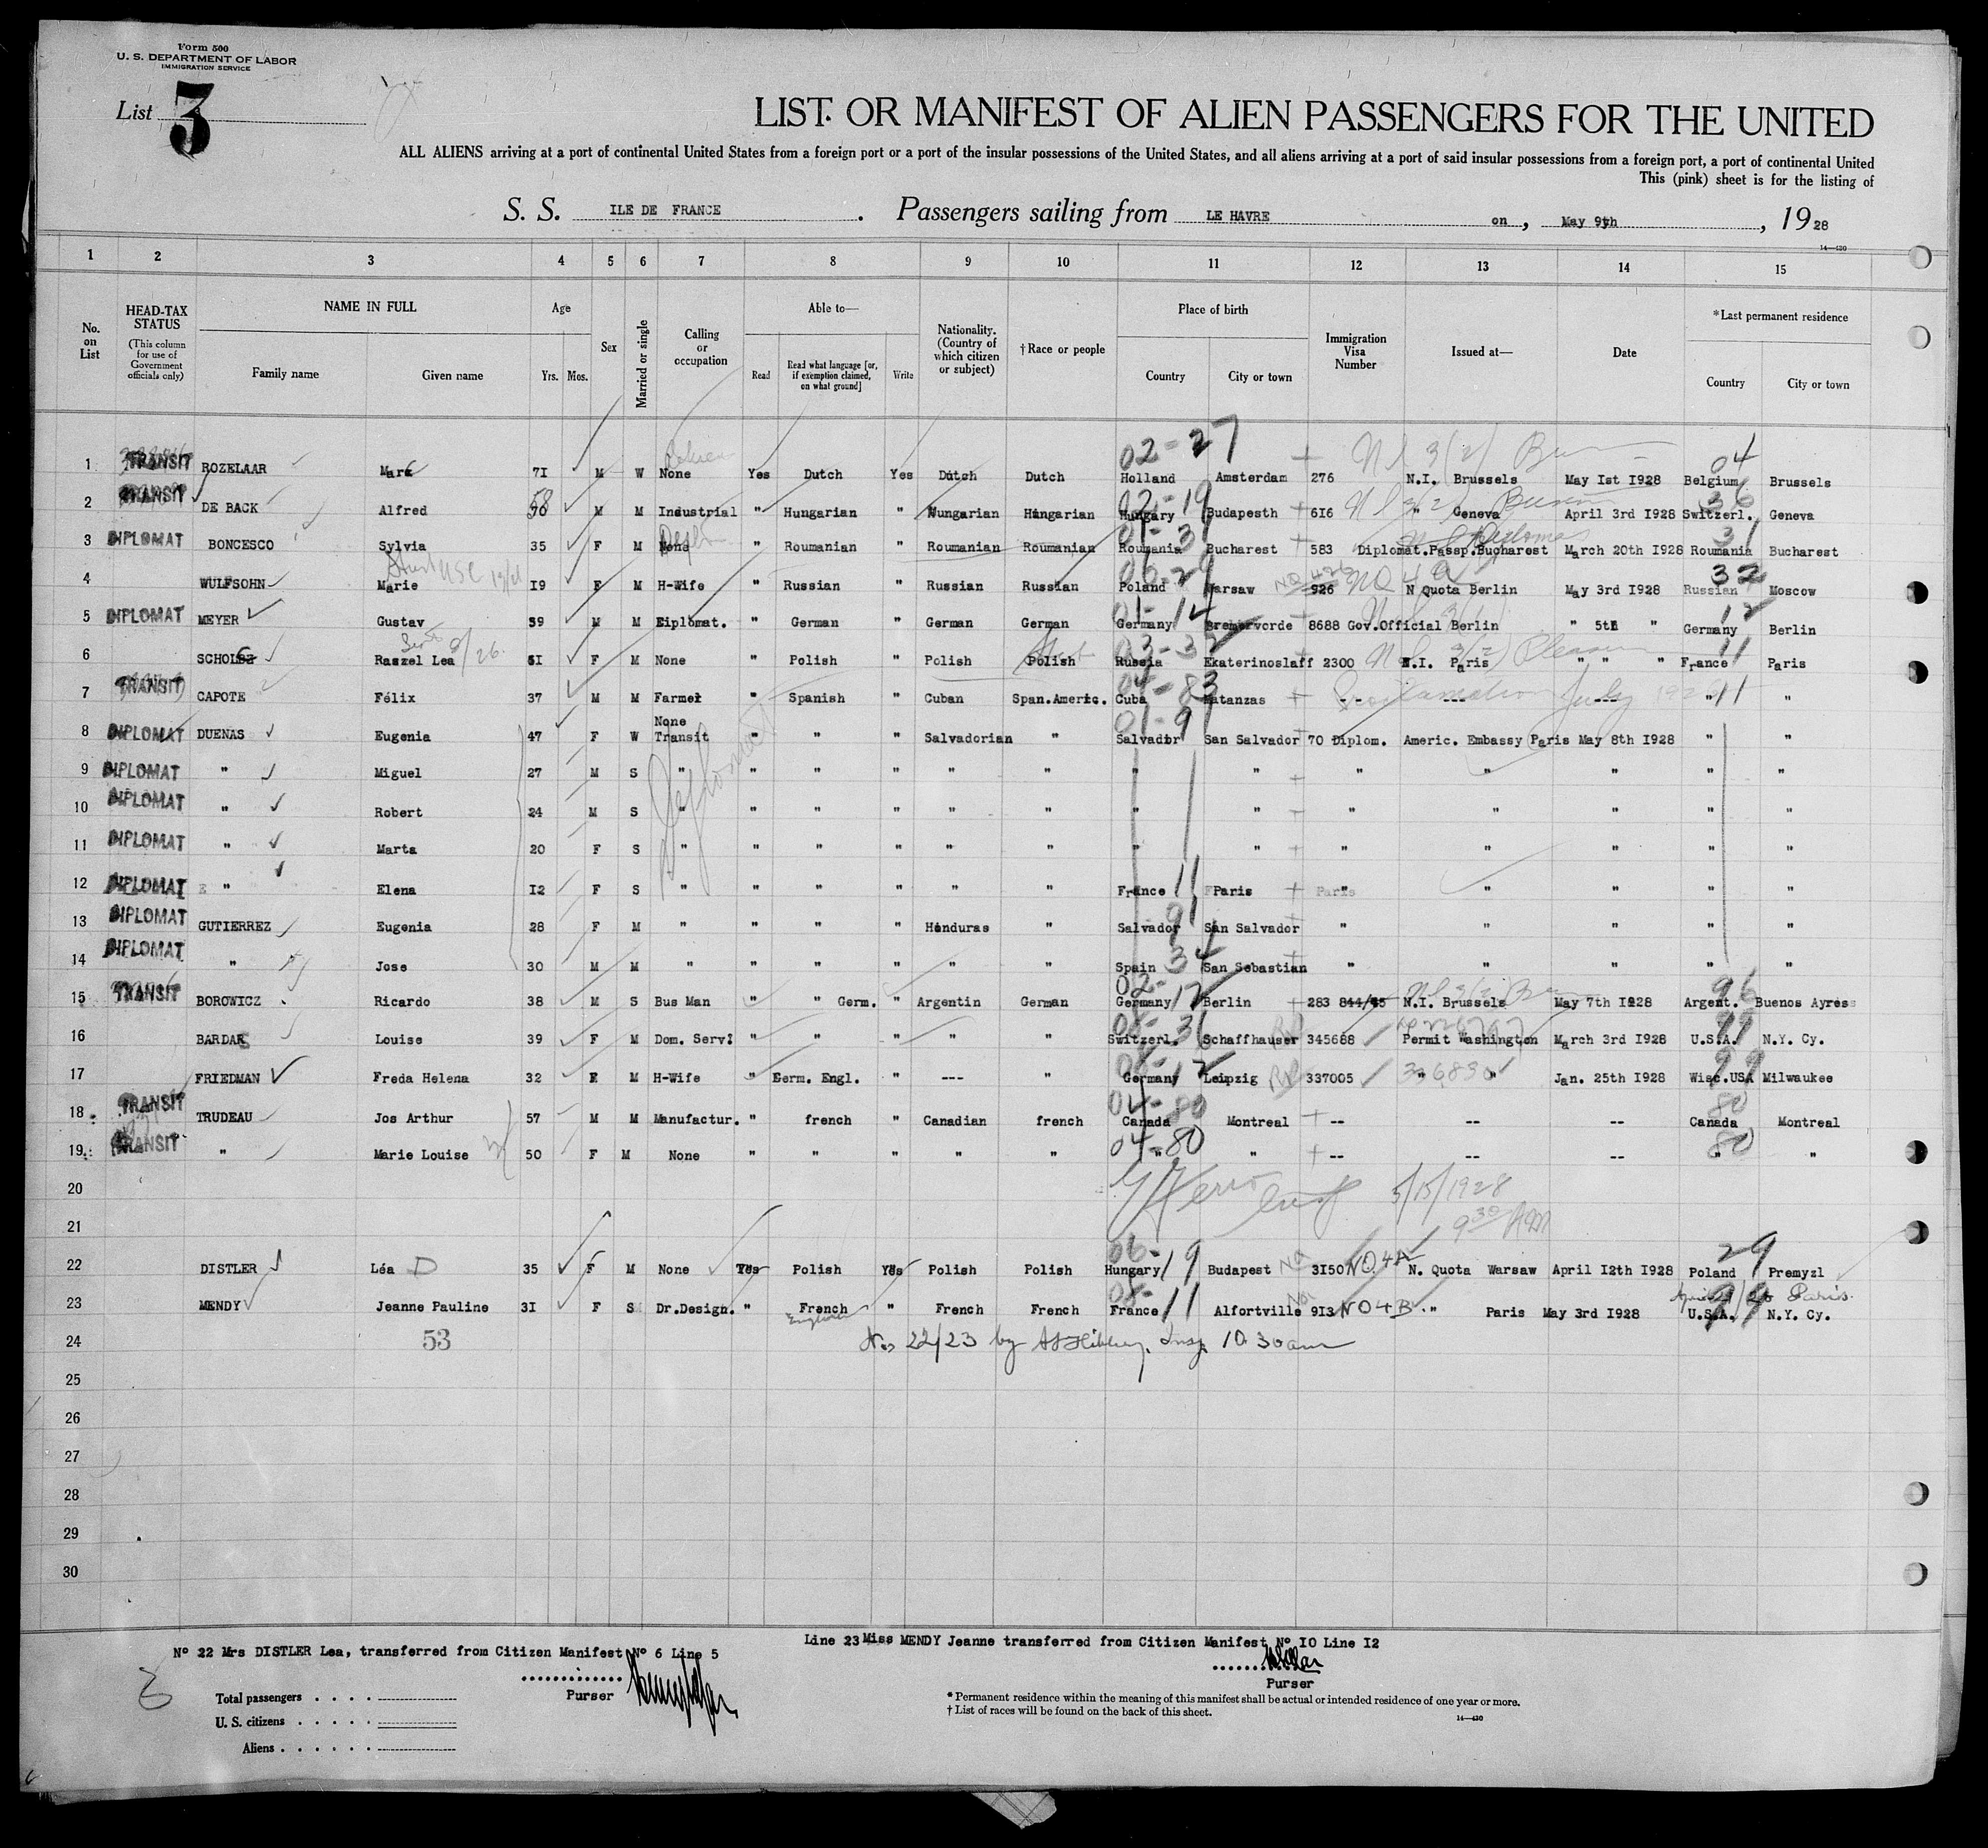 Form 500
U. S. DEPARTMENT OF LABOR
IMMIGRATION SERVICE
List 3
LIST OR MANIFEST OF ALIEN PASSENGERS FOR THE UNITED
ALL ALIENS arriving at a port of continental United States from a foreign port or a port of the insular possessions of the United States, and all aliens arriving at a port of said insular possessions from a foreign port, a port of continental United
This (pink) sheet is for the listing of
S. S. ILE DE FRANCE. Passengers sailing from LE HAVRE on, May 9th, 1928
14—430
1 2 3 4 5 6 7 8 9 10 11 12 13 14 15
No. on List
HEAD-TAX STATUS
(This column for use of Government officials only)
NAME IN FULL
Family name Given name
Age
Yrs. Mos.
Sex
Married or single
Calling or occupation
Able to—
Read Read what language [or, if exemption claimed, on what ground] Write
Nationality. (Country of which citizen or subject)
† Race or people
Place of birth
Country City or town
Immigration Visa Number
Issued at—
Date
* Last permanent residence
Country City or town
02-27 04
1 TRANSIT ROZELAAR 71 M W None Yes Dutch Yes Dutch Dutch Holland Amsterdam 276 N.I. Brussels May 1st 1928 Belgium Brussels
02-19 36
2 TRANSIT DE BACK Alfred 58 M M Industrial " Hungarian " Hungarian Hungarian Hungary Budapesth 616 " Geneva April 3rd 1928 Switzerl. Geneva
01-31 31
3 DIPLOMAT BONCESCO Sylvia 35 F M None " Roumanian " Roumanian Roumanian Roumania Bucharest 583 Diplomat.Passp.Bucharest March 20th 1928 Roumania Bucharest
06-29 32
4 WULFSOHN Marie 19 F M H-Wife " Russian " Russian Russian Poland Warsaw 926 N Quota Berlin May 3rd 1928 Russian Moscow
01-14 12
5 DIPLOMAT MEYER Gustav 39 M M Diplomat. " German " German German Germany Bremervorde 8688 Gov.Official Berlin " 5th " Germany Berlin
03-32 11
6 Raszel Lea 51 F M None " Polish " Polish Polish Russia Ekaterinoslaff 2300 N.I. Paris " " " France Paris
04-83 11
7 TRANSIT CAPOTE Félix 37 M M Farmer " Spanish " Cuban Span.Americ. Cuba Matanzas -- --- --- " "
01-9
8 DIPLOMAT DUENAS Eugenia 47 F W None Transit " " " Salvadorian " Salvador San Salvador 70 Diplom. Americ. Embassy Paris May 8th 1928 " "
9 DIPLOMAT " Miguel 27 M S " " " " " " " " " " " " "
10 DIPLOMAT " Robert 24 M S " " " " " " " " " " " " "
11 DIPLOMAT " Marta 20 F S " " " " " " " " " " " " "
12 DIPLOMAT " Elena 12 F S " " " " " " France 11 Paris " " " "
13 DIPLOMAT GUTIERREZ Eugenia 28 F M " " " " Honduras " Salvador 91 San Salvador " " " " "
14 DIPLOMAT " Jose 30 M M " " " " " " Spain 34 San Sebastian " " " " "
15 TRANSIT BOROWICZ Ricardo 38 M S Bus Man " " Germ. " Argentin German Germany 12 Berlin 283 844/45 N.I. Brussels May 7th 1928 Argent. 96 Buenos Ayres
16 BARDAR Louise 39 F M Dom. Serv. " " " " " Switzerl. Schaffhauser 345688 Permit Washington March 3rd 1928 U.S.A. N.Y. Cy.
17 FRIEDMAN Freda Helena 32 F M H-Wife " Germ. Engl. " --- " Germany Leipzig 337005 " " Jan. 25th 1928 Wisc.USA Milwaukee
04-80 80
18 TRANSIT TRUDEAU Jos Arthur 57 M M Manufactur. " french " Canadian french Canada Montreal -- -- -- Canada Montreal
04-80 80
19 TRANSIT " Marie Louise 50 F M None " " " " " " " -- -- -- " "
20 5/15/1928
21 9 30 AM
06-19 29
22 DISTLER Léa D 35 F M None Yes Polish Yes Polish Polish Hungary Budapest 3150 N. Quota Warsaw April 12th 1928 Poland Premyzl
08-11 99
23 MENDY Jeanne Pauline 31 F S Dr.Design. " French " French French France Alfortville 913 NO 4B " Paris May 3rd 1928 U.S.A. N.Y. Cy.
24 53 No 22/23 by Insp. 10 30 am
25
26
27
28
29
30
Nº 22 Mrs DISTLER Lea, transferred from Citizen Manifest Nº 6 Line 5
Line 23 Miss MENDY Jeanne transferred from Citizen Manifest Nº 10 Line 12
Purser
Purser
Total passengers
U. S. citizens
Aliens
* Permanent residence within the meaning of this manifest shall be actual or intended residence of one year or more.
† List of races will be found on the back of this sheet.
14—430